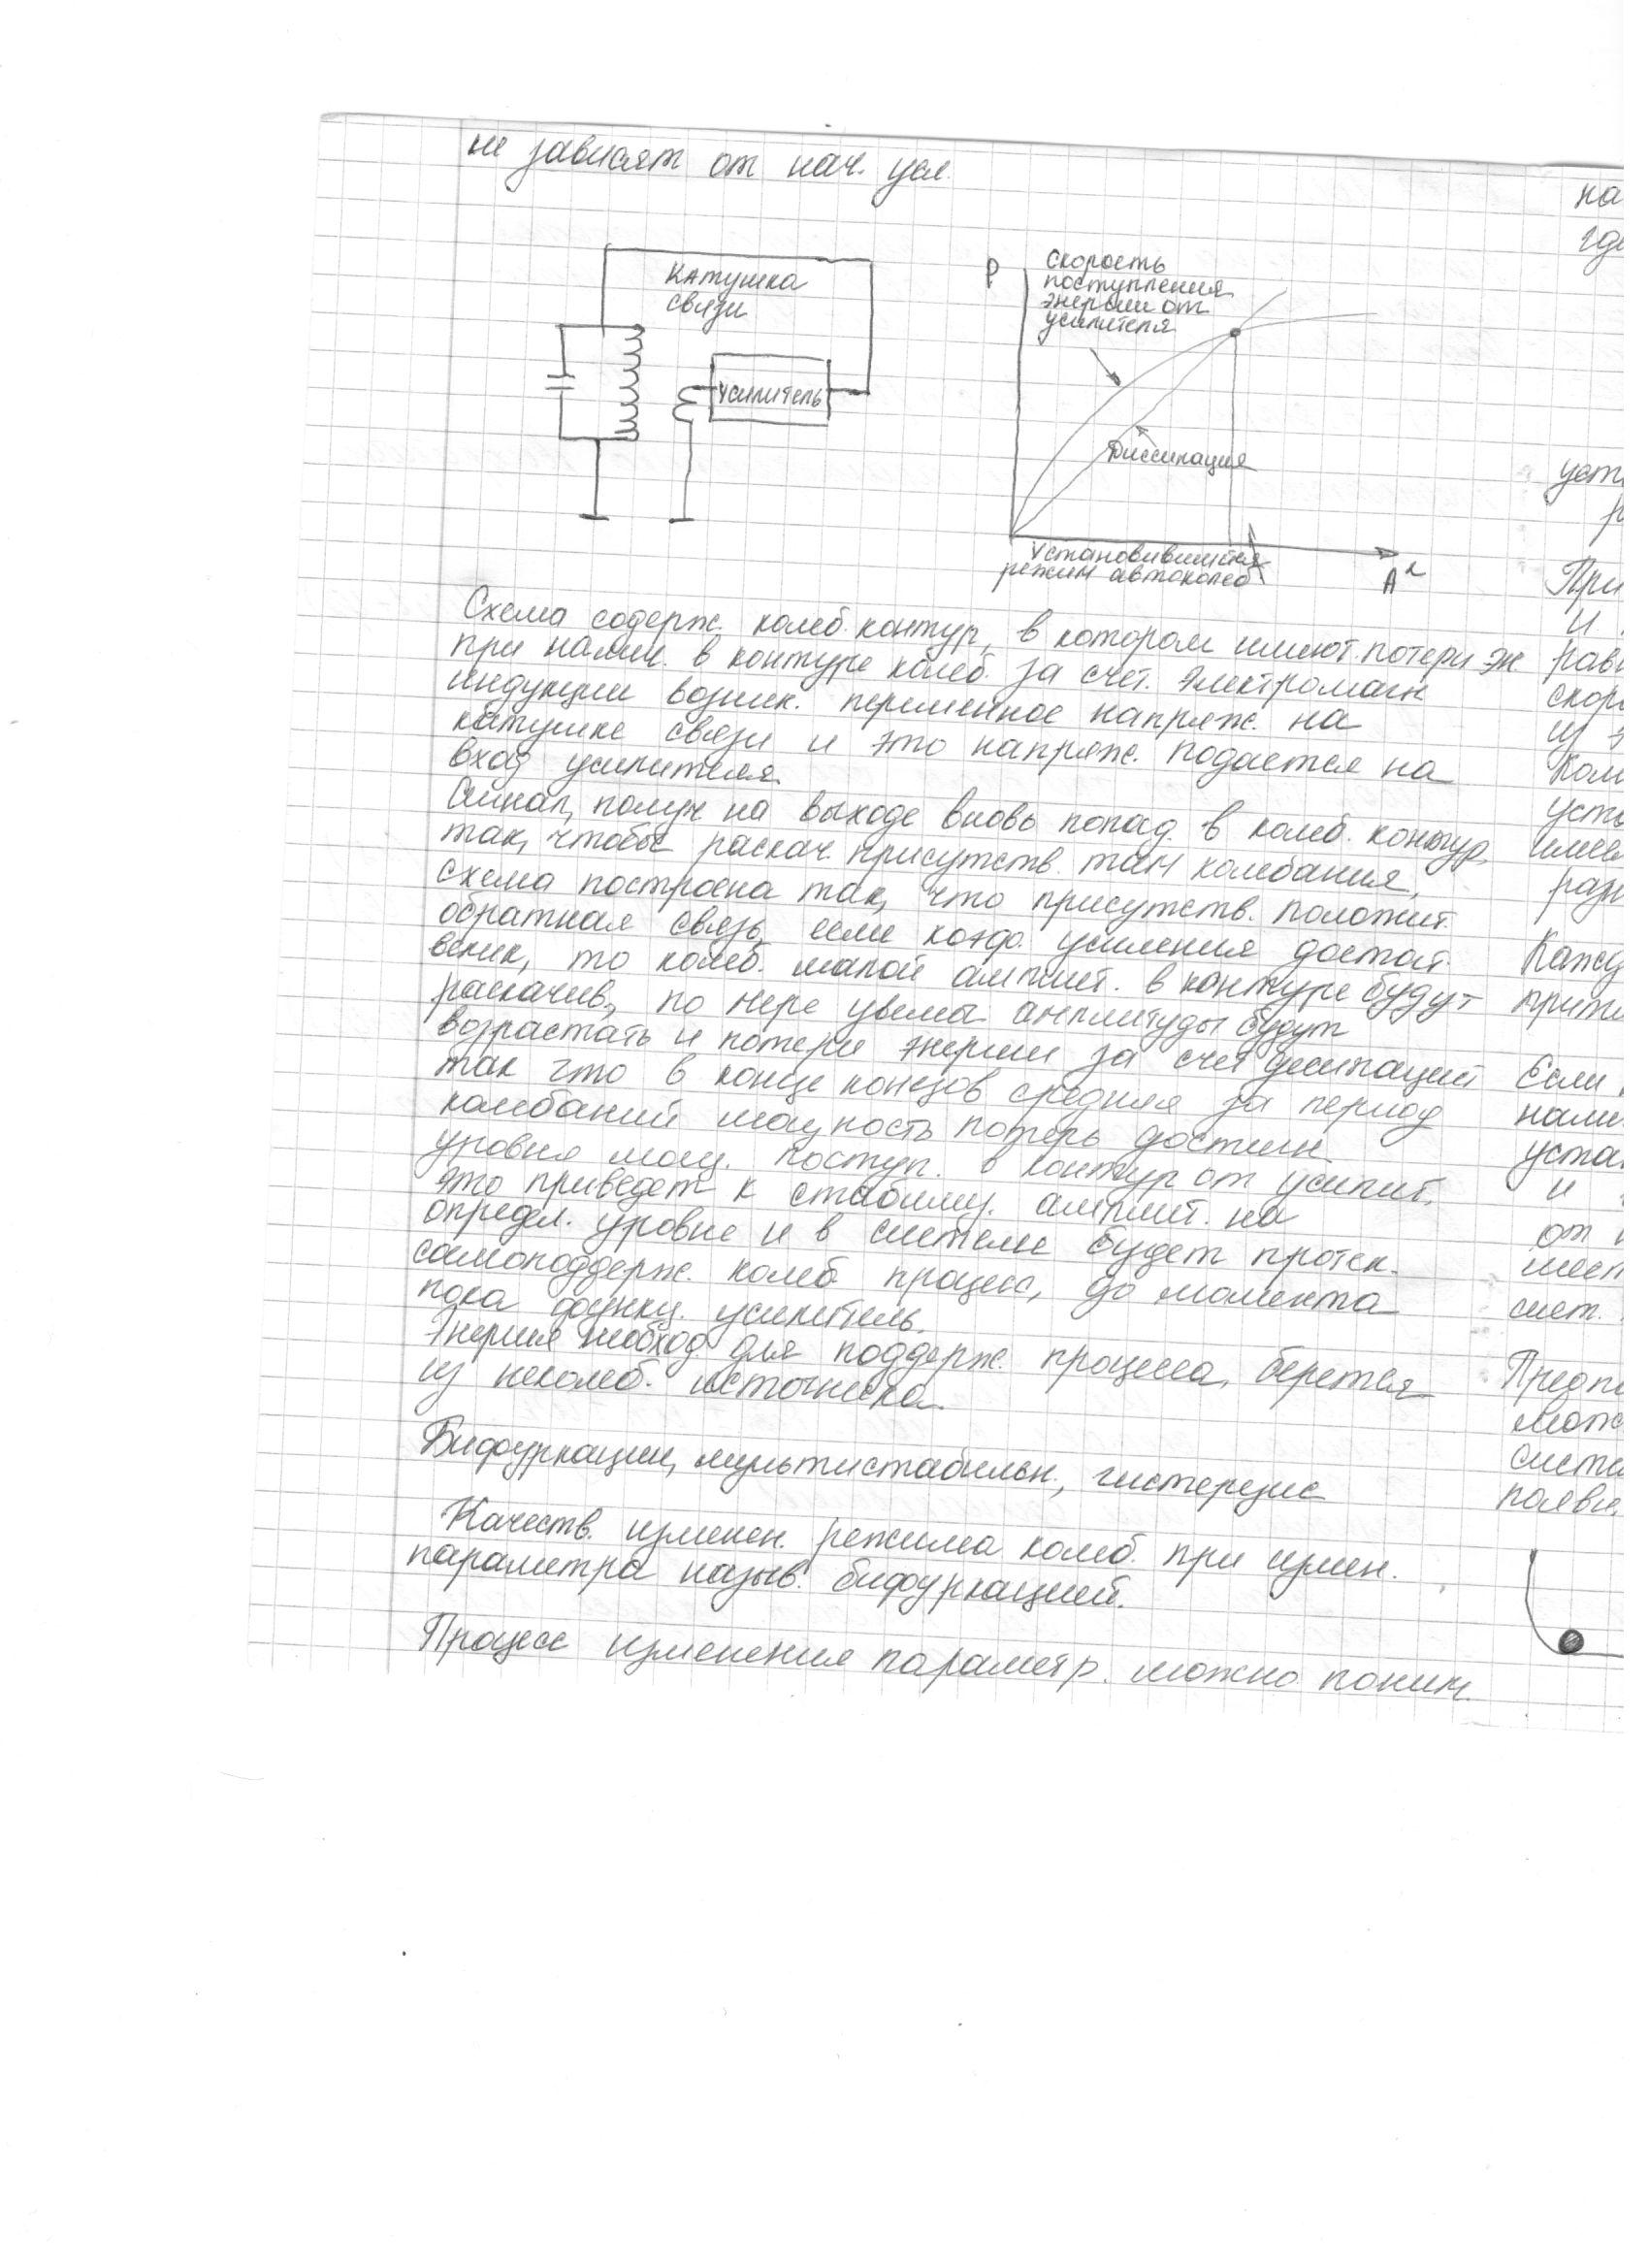 не зависят от нач. усл.
Катушка
связи
Усилитель
P
Скорость
поступления
энергии от
усилителя
Диссипация
Установившийся
режим автоколеб
A²
Схема содерж. колеб. контур, в котором имеют. потери эн.
при налич. в контуре колеб. за счет. электромагн
индукции возник. переменное напряж. на
катушке связи и это напряж. подается на
вход усилителя.
Сигнал, получ на выходе вновь попад. в колеб. контур,
так, чтобы раскач. присутств. там колебания,
схема построена так, что присутств. положит.
обратная связь, если коэф. усиления достат.
велик, то колеб. малой амплит. в контуре будут
раскачив., по мере увелич. амплитуды будут
возрастать и потери энергии за счет диссипаций
так что в конце концов средняя за период
колебаний мощность потерь достигн
уровня мощ. поступ. в контур от усилит.
это приведет к стабилиз. амплит. на
определ. уровне и в системе будет протек.
самоподдерж. колеб процесс, до момента
пока функц. усилитель.
Энергия необход для поддерж. процесса, берется
из неколеб. источника.
Бифуркации, мультистабильн., гистерезис
Качеств. изменен. режима колеб. при измен.
параметра назыв. бифуркацией.
Процесс изменения параметр. можно поним.
на
где
уст
р
При
и
рав
скор
из э
Кол
уст
имее
раз
Кажд
притя
Если
нали
уста
и
от н
сист.
Предпо
можн
систе
появи